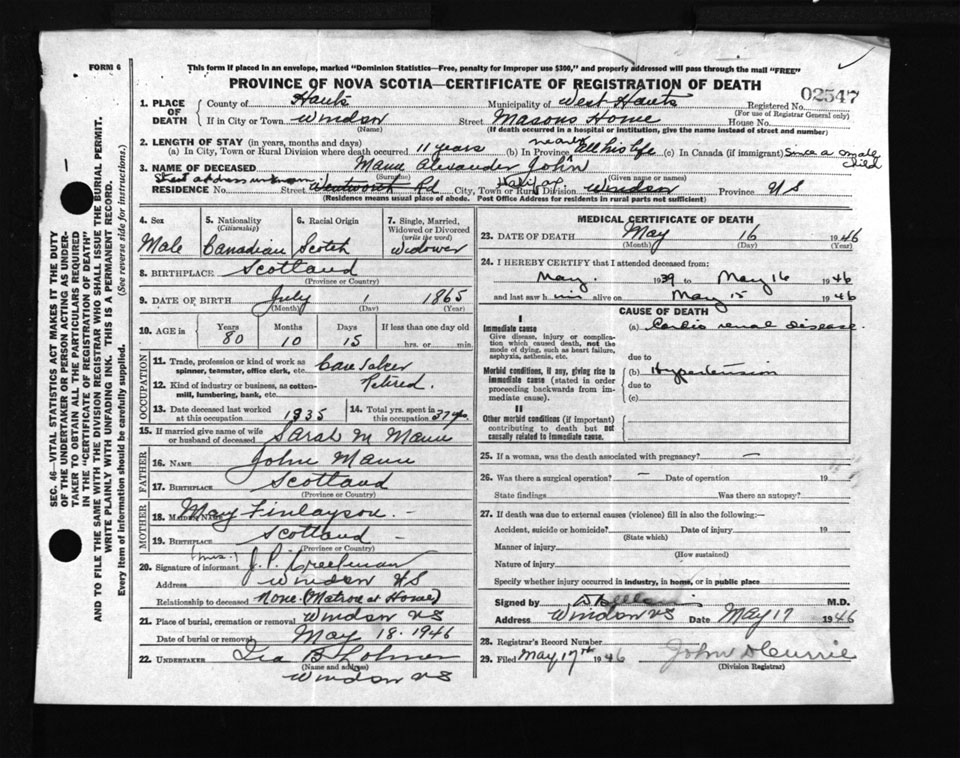 FORM 6
This form if placed in an envelope, marked "Dominion Statistics—Free, penalty for improper use $300," and properly addressed will pass through the mail "FREE"
PROVINCE OF NOVA SCOTIA—CERTIFICATE OF REGISTRATION OF DEATH
02547
1. PLACE OF DEATH
County of Hants Municipality of West Hants Registered No.
(For use of Registrar General only)
If in City or Town Windsor Street Masons Home House No.
(Name) (If death occurred in a hospital or institution, give the name instead of street and number)
2. LENGTH OF STAY (in years, months and days)
(a) In City, Town or Rural Division where death occurred 11 years (b) In Province nearly all his life (c) In Canada (if immigrant) Since a small child
3. NAME OF DECEASED Mann Alexander John
(Surname) (Given name or names)
Street address unknown Halifax
RESIDENCE No. Street Wentworth Rd City, Town or Rural Division Windsor Province NS
(Residence means usual place of abode. Post Office Address for residents in rural parts not sufficient)
4. Sex
Male
5. Nationality
(Citizenship)
Canadian
6. Racial Origin
Scotch
7. Single, Married, Widowed or Divorced
(write the word)
Widower
8. BIRTHPLACE Scotland
(Province or Country)
9. DATE OF BIRTH July 1 1865
(Month) (Day) (Year)
10. AGE in Years Months Days If less than one day old
80 10 15 hrs. or min.
OCCUPATION
11. Trade, profession or kind of work as spinner, teamster, office clerk, etc. Care taker
12. Kind of industry or business, as cotton-mill, lumbering, bank, etc. Retired.
13. Date deceased last worked at this occupation 1935
14. Total yrs. spent in this occupation 27 yrs
15. If married give name of wife or husband of deceased Sarah M Mann
FATHER
16. NAME John Mann
17. BIRTHPLACE Scotland
(Province or Country)
MOTHER
18. MAIDEN NAME May Finlayson –
19. BIRTHPLACE Scotland –
(Province or Country)
20. Signature of informant (Mrs.) J. P. Creelman
Address Windsor NS
Relationship to deceased None (Matron at Home)
21. Place of burial, cremation or removal Windsor NS
Date of burial or removal May 18. 1946
22. UNDERTAKER Ira B
(Name and address)
Windsor NS
MEDICAL CERTIFICATE OF DEATH
23. DATE OF DEATH May 16 1946
(Month) (Day) (Year)
24. I HEREBY CERTIFY that I attended deceased from:
May. 1939 to May 16 1946
and last saw him alive on May 15 1946
CAUSE OF DEATH
I
Immediate cause
Give disease, injury or complication which caused death, not the mode of dying, such as heart failure, asphyxia, asthenia, etc.
(a) Cardio renal disease
due to
Morbid conditions, if any, giving rise to immediate cause (stated in order proceeding backwards from immediate cause).
(b) Hypertension
due to
(c)
II
Other morbid conditions (if important) contributing to death but not causally related to immediate cause.
25. If a woman, was the death associated with pregnancy? —
26. Was there a surgical operation? – Date of operation 19
State findings Was there an autopsy?
27. If death was due to external causes (violence) fill in also the following:—
Accident, suicide or homicide? Date of injury 19
(State which)
Manner of injury
(How sustained)
Nature of injury
Specify whether injury occurred in industry, in home, or in public place
Signed by M.D.
Address Windsor NS Date May 17 1946
28. Registrar's Record Number
29. Filed May 17th 1946 John D Currie
(Division Registrar)
SEC. 46—VITAL STATISTICS ACT MAKES IT THE DUTY
OF THE UNDERTAKER OR PERSON ACTING AS UNDER-
TAKER TO OBTAIN ALL THE PARTICULARS REQUIRED
IN THE "CERTIFICATE OF REGISTRATION OF DEATH"
AND TO FILE THE SAME WITH THE DIVISION REGISTRAR WHO SHALL ISSUE THE BURIAL PERMIT.
WRITE PLAINLY WITH UNFADING INK. THIS IS A PERMANENT RECORD.
Every item of information should be carefully supplied. (See reverse side for instructions.)